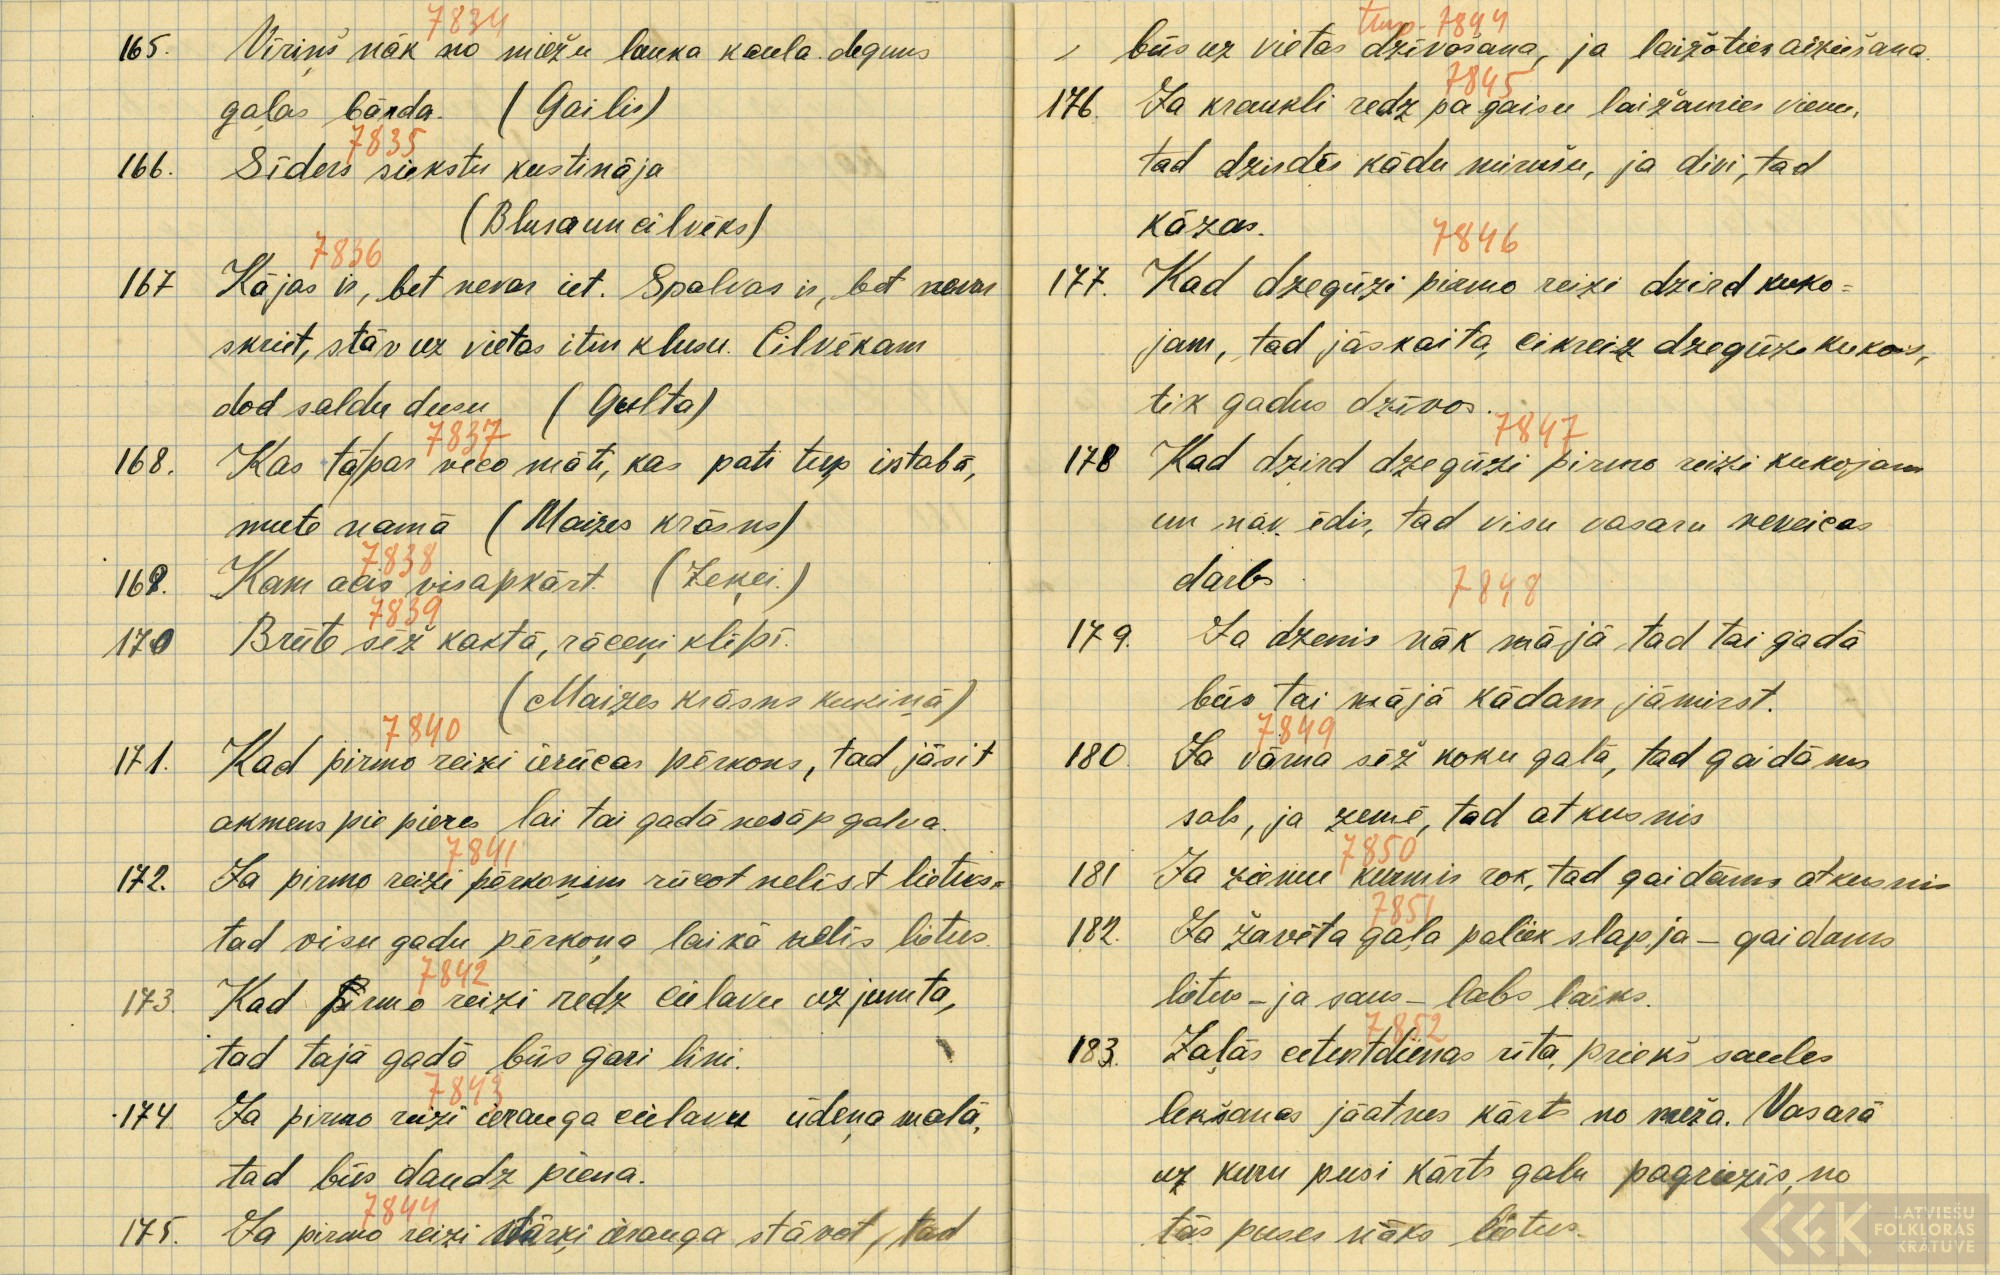 7834
165. Vīriņš nāk no miežu lauka kaula deguns
gaļas bārda. (Gailis)
7835
166. Sīders siekstu kustināja
(Blusa un cilvēks)
7836
167 Kājas ir, bet nevar iet. Spalvas ir, bet nevar
skriet, stāv uz vietas itin klusu. Cilvēkam
dod saldu dusu (Gulta)
7837
168. Kas tā par veco māti, kas pati tup istabā,
mute namā (Maizes krāsns)
7838
169. Kam acis visapkārt. (Zeķei.)
7839
170 Brūte sēž kaktā, rāceņi klēpī.
(Maizes krāsns kukiņā)
7840
171. Kad pirmo reizi ierūcas pērkons, tad jāsit
akmens pie pieres lai tai gadā nesāp galva.
7841
172. Ja pirmo reizi pērkoņim rūcot nelīst lietus
tad visu gadu pērkoņa laikā nelīs lietus.
7842
173. Kad pirmo reizi redz cielavu uz jumta,
tad tajā gadā būs gari lini.
7843
174 Ja pirmo reizi ierauga cielavu ūdeņa malā,
tad būs daudz piena.
7844
175. Ja pirmo reizi stārķi ierauga stāvot, tad
turp. 7844
būs uz vietas dzīvošana, ja laižoties aiziešana.
7845
176. Ja kraukli redz pa gaisu laižamies vienu,
tad dzirdēs kādu mirušu, ja divi, tad
kāzas.
7846
177. Kad dzegūzi pirmo reizi dzird kuko=
jam, tad jāskaita, cikreiz dzegūze kukos,
tik gadus dzīvos.
7847
178 Kad dzird dzegūzi pirmo reizi kukojam
un nav ēdis, tad visu vasaru neveicas
darbs
7848
179. Ja dzenis nāk mājā tad tai gadā
būs tai mājā kādam jāmirst.
7849
180. Ja vārna sēž koku galā, tad gaidāms
sals, ja zemē, tad atkusnis
7850
181 Ja ziemu kurmis rok, tad gaidāms atkusnis
7851
182. Ja žavēta gaļa paliek slapja – gaidams
lietus – ja saus – labs laiks.
7852
183. Zaļās ceturtdienas rītā, prieks saules
lekšanas jāatnes kārts no meža. Vasarā
uz kuru pusi kārts galu pagriezīs, no
tās puses nāks lietus.
LATVIEŠU
FOLKLORAS
KRĀTUVE